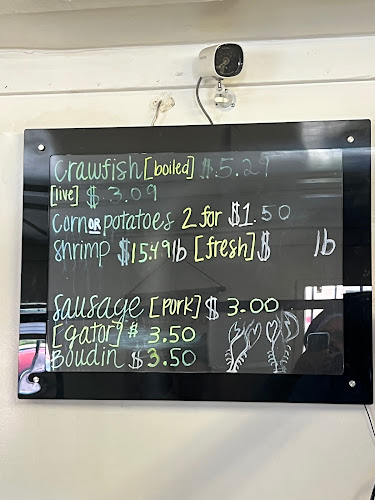 crawfish [boiled] $.5.29
[live] $.3.09
corn OR potatoes 2 for $1.50
shrimp $15.49 lb [fresh] $ lb
sausage [pork] $ 3.00
[gator] $ 3.50
Boudin $ 3.50